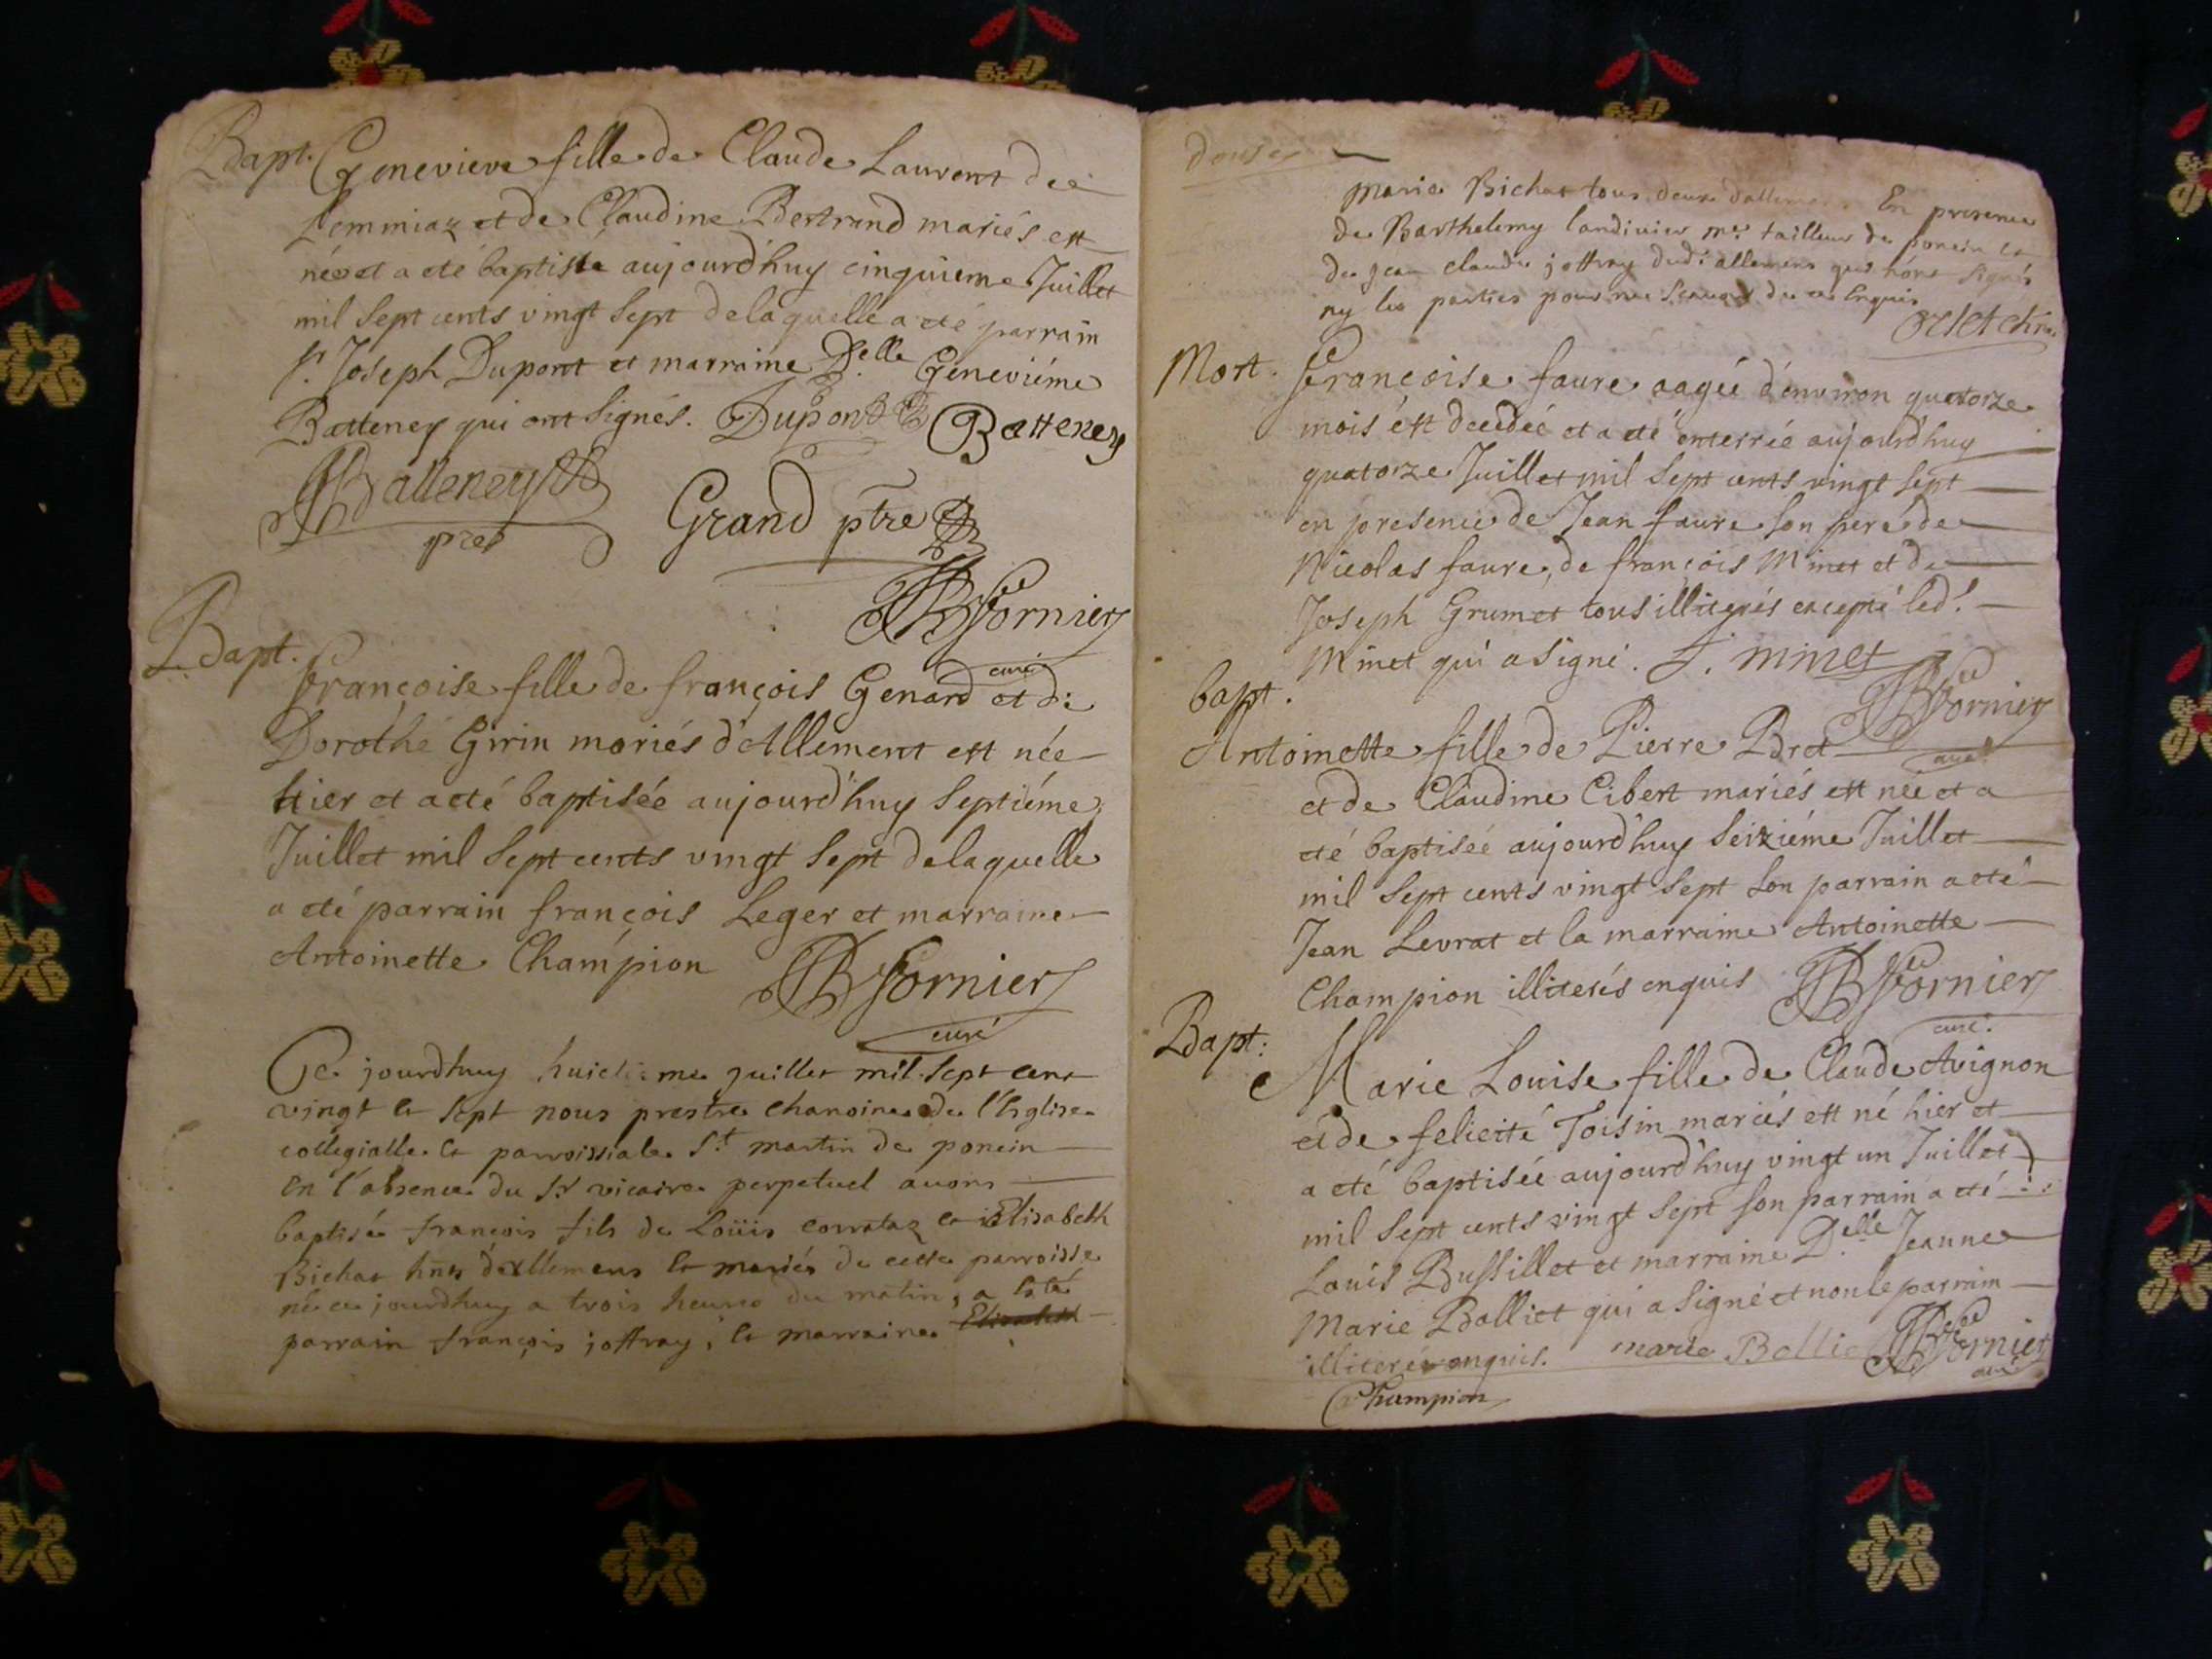 Bapt. Genevieve fille de Claude Laurent de
Lemmiaz et de Claudine Bertrand mariés est
née et a eté baptisée aujourd'huy cinquieme Juillet
mil sept cents vingt sept de laquelle a eté parrain
Sr. Joseph Dupont et marraine D.elle Geneviéme
Batteney qui ont signés. Dupont Batteney
Balleney
ptre Grand ptre
JB Fornier
curé
Bapt. Françoise fille de françois Genard et de
Dorothé Girin mariés d'Allement est née
hier et a eté baptisée aujourd'huy septiéme
Juillet mil sept cents vingt sept de laquelle
a eté parrain françois Leger et marraine
Antoinette Champion JB Fornier
curé
Ce jourdhuy huictieme juillet mil sept cent
vingt et sept nous prestre chanoine de l'Eglise
collegialle et parroissiale St. martin de poncin
en l'absence du Sr vicaire perpetuel avons
baptisé françois fils de Loüis corrataz et Elisabeth
Bichat d'allemens et mariés de cette parroisse
né ce jourdhuy a trois heures du matin, a esté
parrain françois joffray, et marraine Elisabeth
douse
marie Bichat tous deux En presence
de Barthelemy landivier me. tailleur de poncin et
de jean claude joffray dud. allemens qui n'ont signés
ny les parties pour ne sçavoir de ce Enquis
Mort. Françoise faure aagée d'environ quatorze
mois est decedée et a eté enterrée aujourd'huy
quatorze Juillet mil sept cents vingt sept
en presence de Jean faure son pere de
Nicolas faure, de françois Minet et de
Joseph Grumet tous illiterés excepté led.
Minet qui a signé. f. minet
JB Fornier
curé
bapt.
Antoinette fille de Pierre Bret
et de Claudine Cibert mariés est née et a
eté baptisée aujourd'huy seiziéme Juillet
mil sept cents vingt sept son parrain a eté
Jean Levrat et la marraine Antoinette
Champion illiterés enquis JB Fornier
curé.
Bapt: Marie Louise fille de Claude Avignon
et de felicité Toisin mariés est né hier et
a eté baptisée aujourd'huy vingt un Juillet
mil sept cents vingt sept son parrain a eté
Louis Bussillet et marraine D.elle Jeanne
Marie Balliet qui a signé et non le parrain
illiteré enquis. marie Balliet JB Fornier
curé
Champion